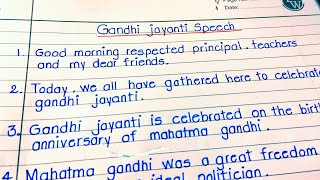 Date:
Gandhi jayanti Speech
1. Good morning respected principal, teachers
and my dear friends.
2. Today, we all have gathered here to celebrat
gandhi jayanti.
3. Gandhi jayanti is celebrated on the birt
anniversary of mahatma gandhi.
4 Mahatma gandhi was a great freedom
ideal politician.